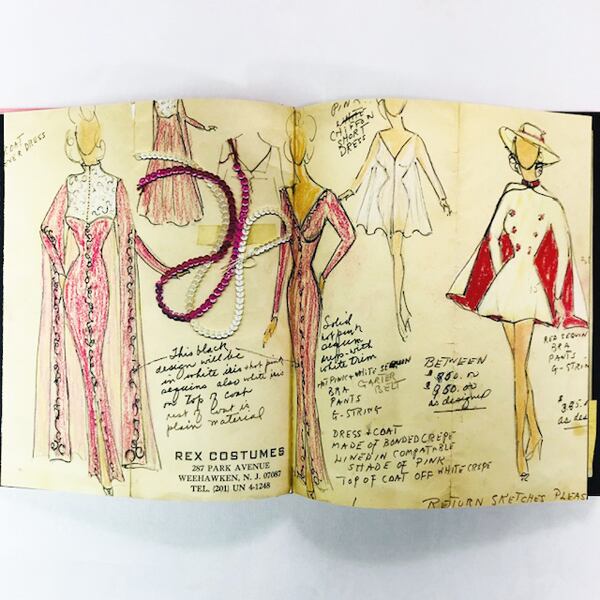 COAT
OVER DRESS
This black
design will be
in white iris hot pink
sequins also white iris
on top of coat
rest of coat is
plain material
REX COSTUMES
287 PARK AVENUE
WEEHAWKEN, N. J. 07087
TEL. (201) UN 4-1248
PINK
CHIFFON
SHORT
DRESS
Solid
hot pink
sequin
with
white trim
HOT PINK & WHITE SEQUIN
BRA GARTER
PANTS BELT
G-STRING
DRESS & COAT
MADE OF BONDED CREPE
LINED IN COMPATABLE
SHADE OF PINK
TOP OF COAT OFF WHITE CREPE
BETWEEN
$850.00
$950.00
as designed
RED SEQUIN
BRA
PANTS
G-STRIN
as des
RETURN SKETCHES PLEAS